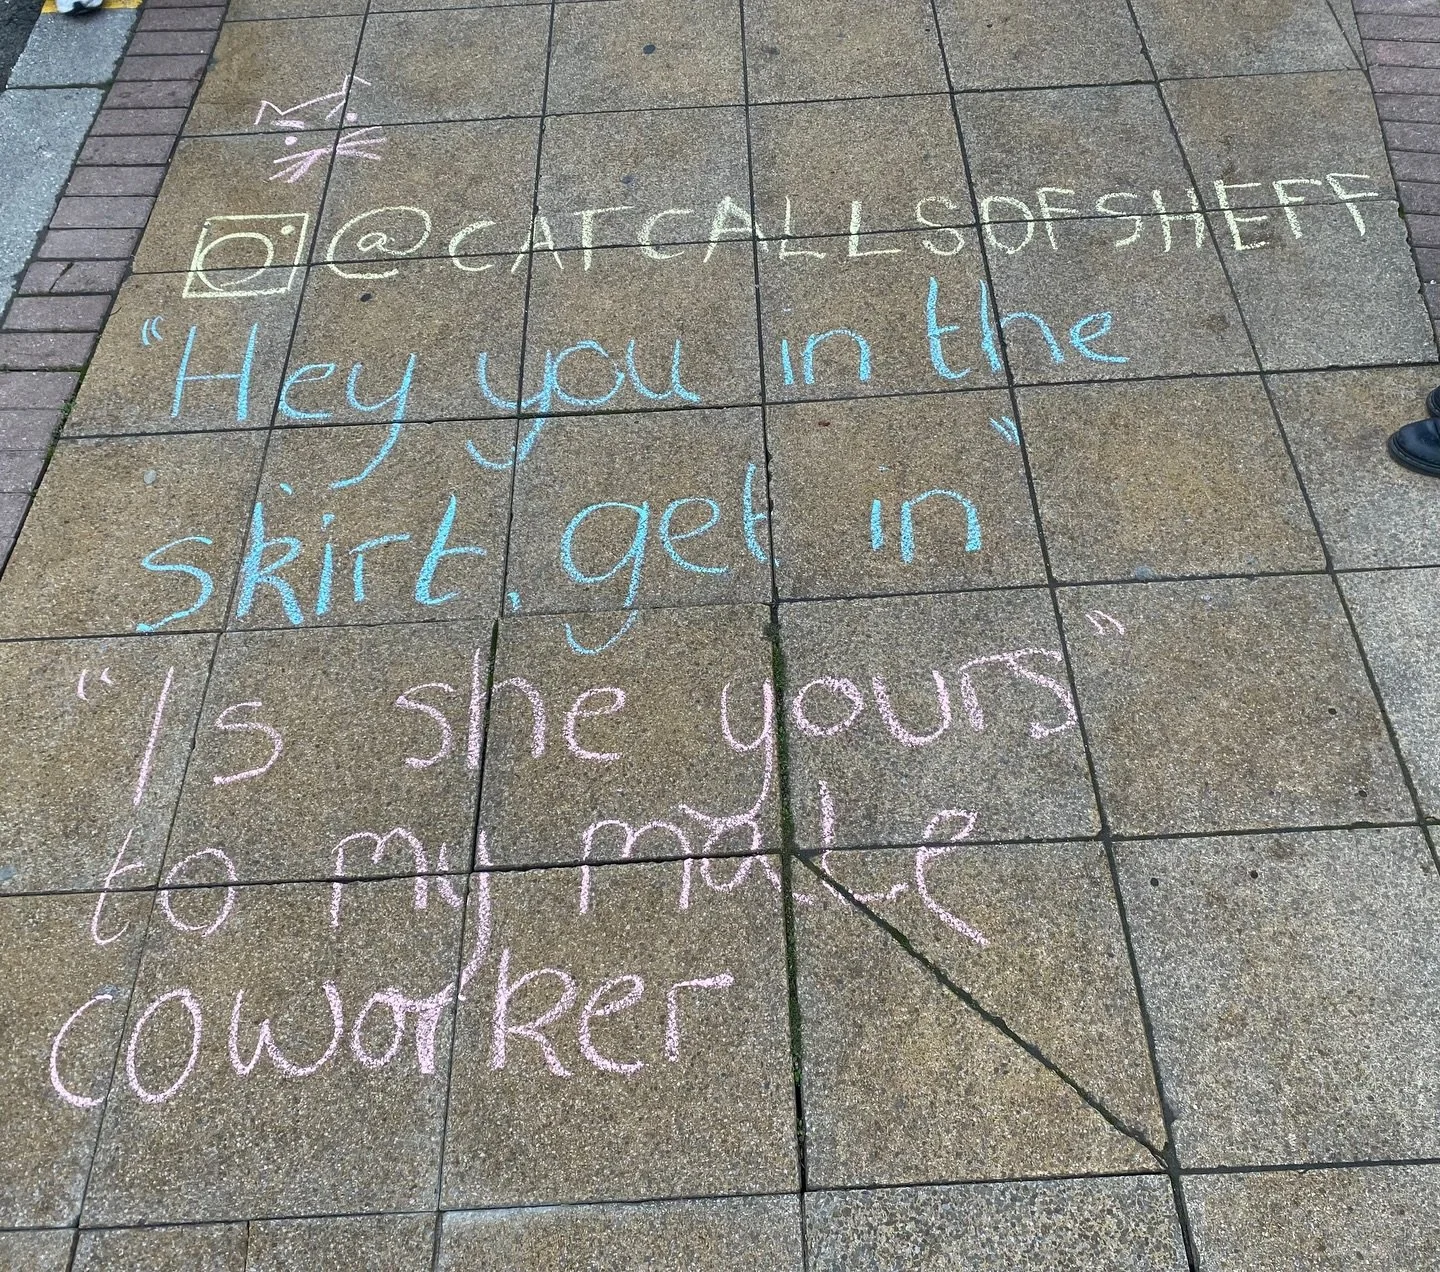 @CATCALLSOFSHEFF
"Hey you in the
skirt, get in"
"Is she yours"
to my male
coworker